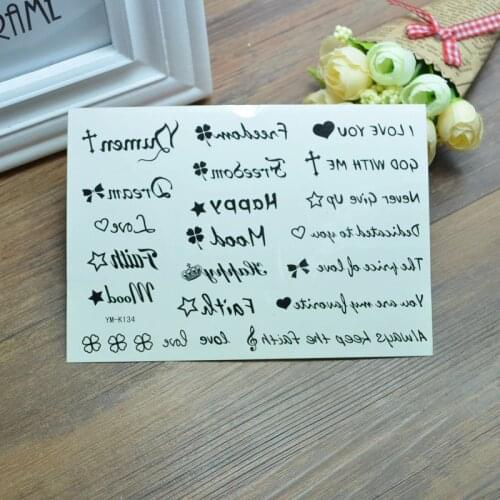 RAME
Dumen
Dream
Love
Faith
Mood
YM-K134
Freedom
Freedom
Happy
Mood
Happy
Faith
I LOVE YOU
GOD WITH ME
Never Give Up
Dedicated to you
The price of love
You are my favorite
Always keep the faith love love love